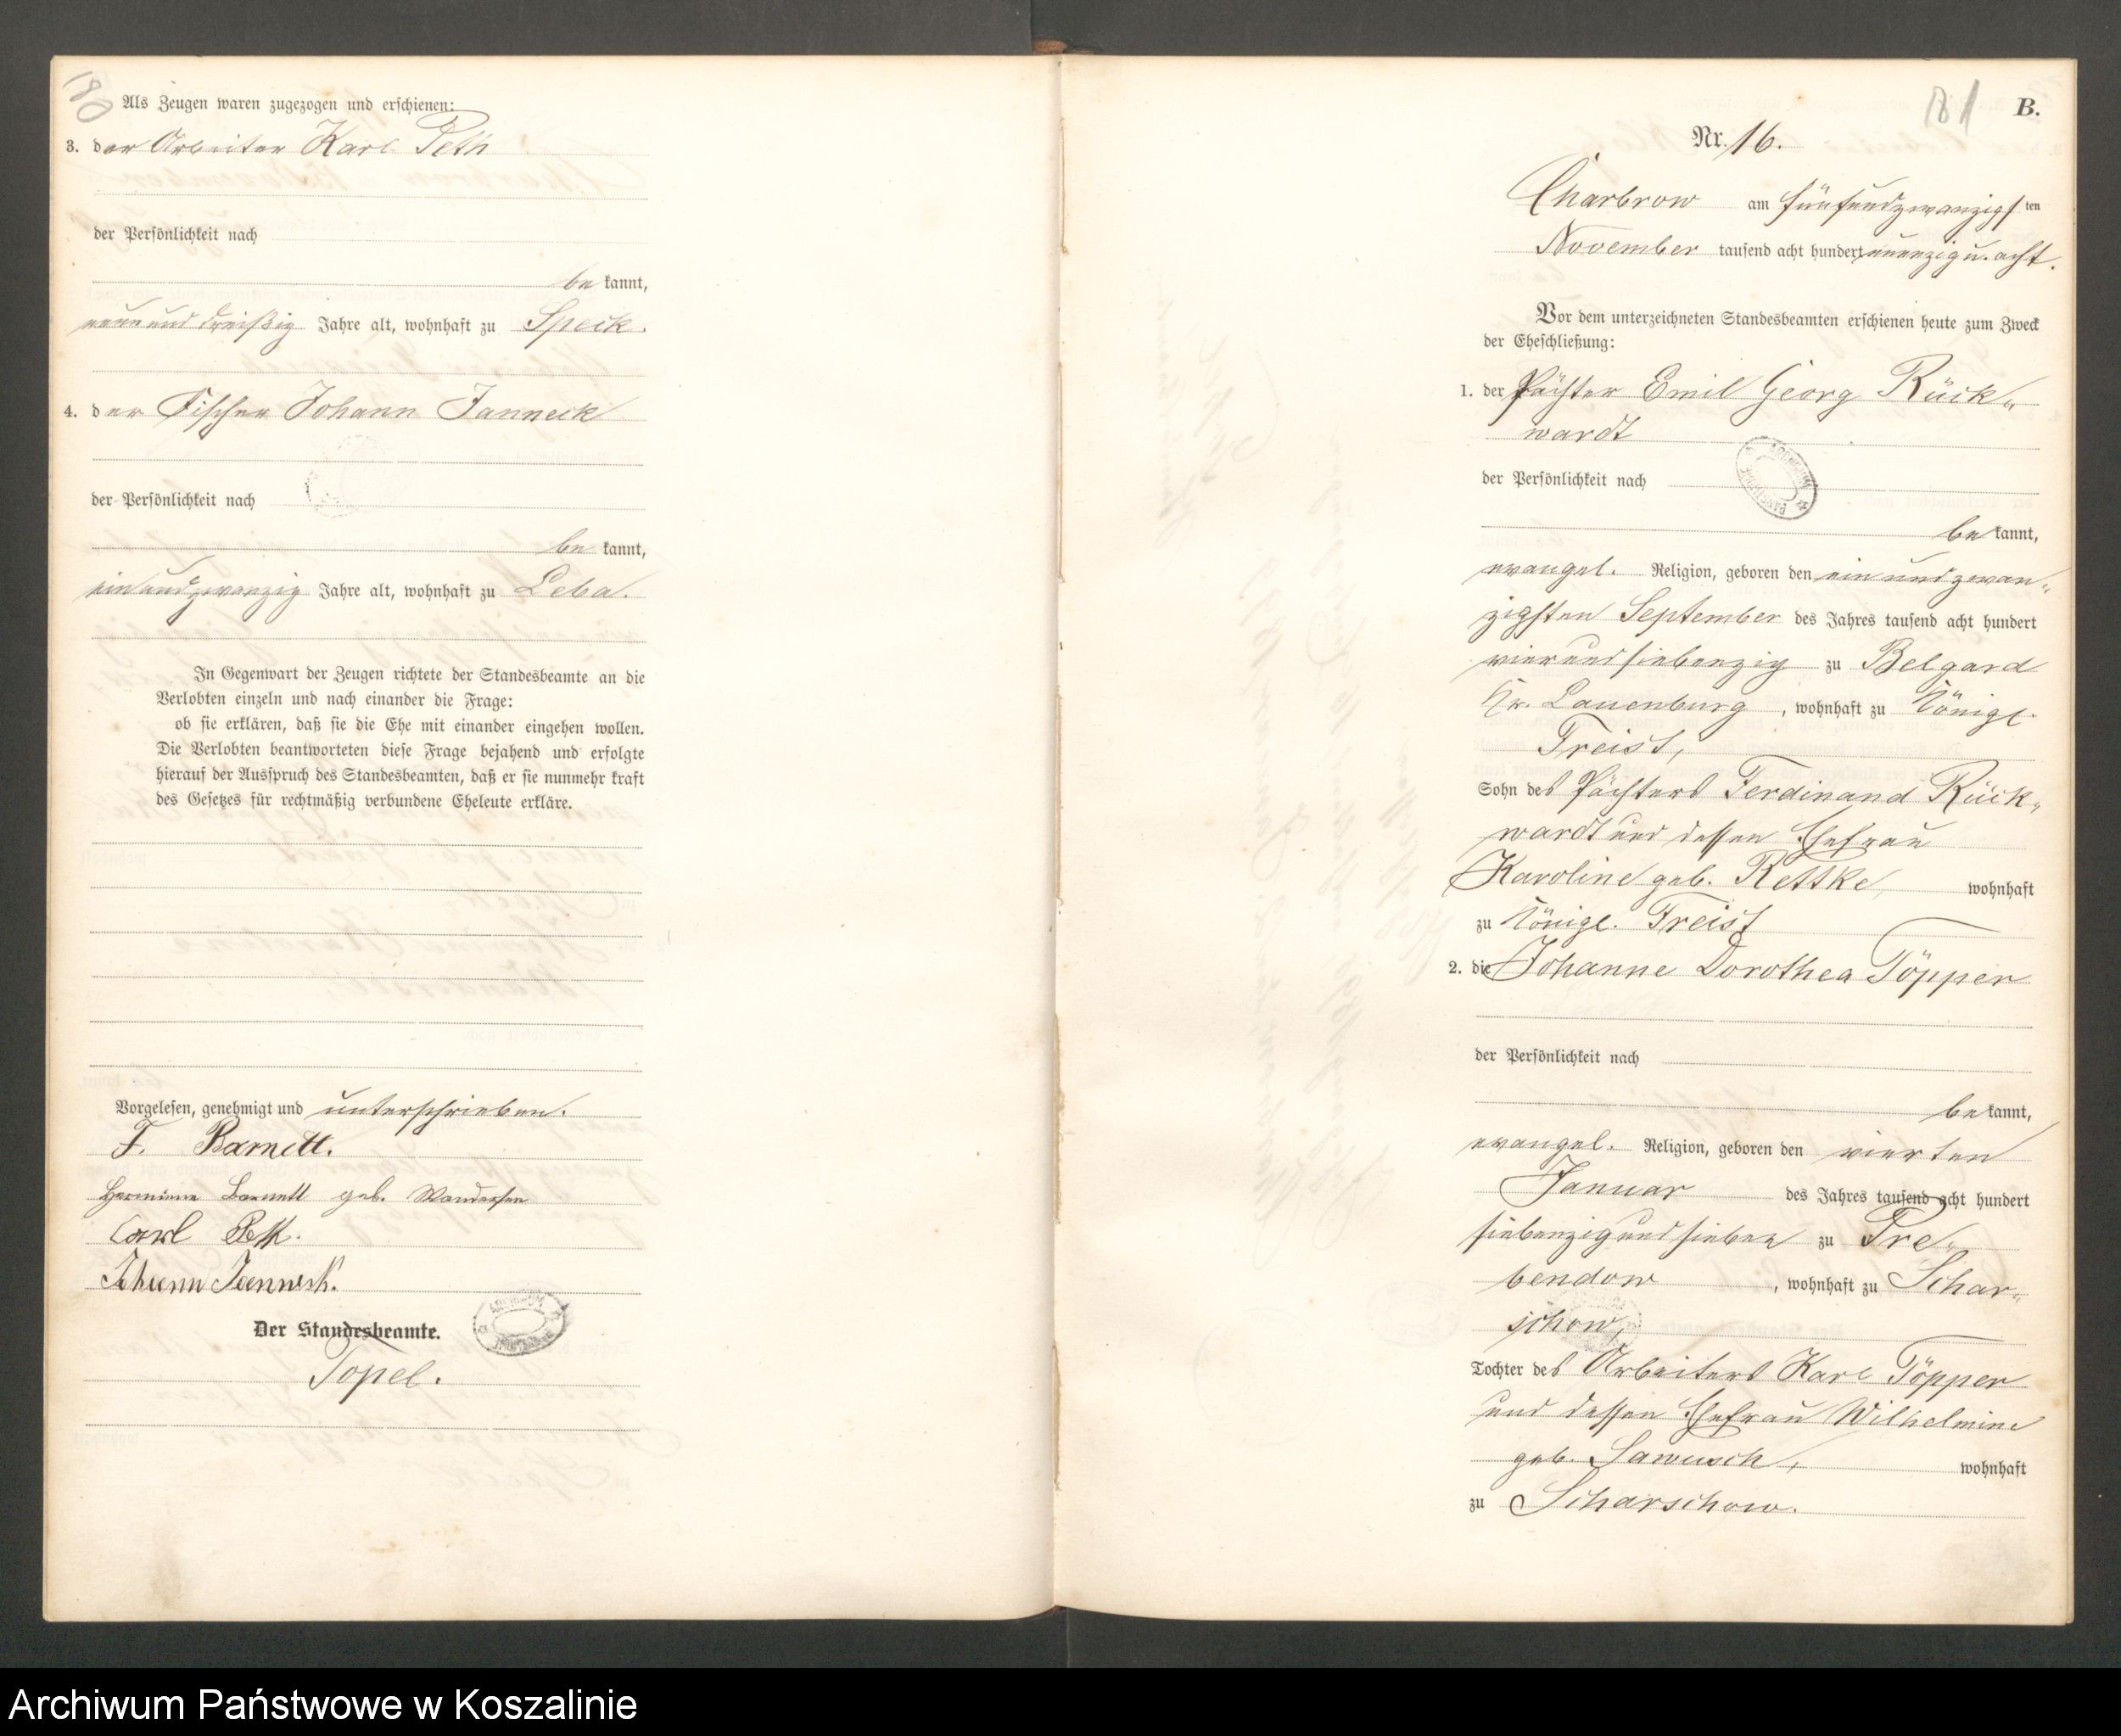 180
Als Zeugen waren zugezogen und erschienen:
3. der Arbeiter Karl Peth
der Persönlichkeit nach
be kannt,
neun und dreißig Jahre alt, wohnhaft zu Speck.
4. der Fischer Johann Janneck
der Persönlichkeit nach
be kannt,
einundzwanzig Jahre alt, wohnhaft zu Leba.
In Gegenwart der Zeugen richtete der Standesbeamte an die
Verlobten einzeln und nach einander die Frage:
ob sie erklären, daß sie die Ehe mit einander eingehen wollen.
Die Verlobten beantworteten diese Frage bejahend und erfolgte
hierauf der Ausspruch des Standesbeamten, daß er sie nunmehr kraft
des Gesetzes für rechtmäßig verbundene Eheleute erkläre.
Vorgelesen, genehmigt und unterschrieben.
F. Barnett.
Hermine Barnett geb. Wandersee
Carl Peth.
Johann Jannek.
Der Standesbeamte.
Topel.
181
B.
Nr. 16.
Charbrow am fünfundzwanzigsten
November tausend acht hundert neunzig u. acht.
Vor dem unterzeichneten Standesbeamten erschienen heute zum Zweck
der Eheschließung:
1. der Pächter Emil Georg Rück„
wardt
der Persönlichkeit nach
be kannt,
evangel. Religion, geboren den ein und zwan„
zigsten September des Jahres tausend acht hundert
vierundsiebenzig zu Belgard
Kr. Lauenburg, wohnhaft zu Königl.
Freist,
Sohn des Pächters Ferdinand Rück„
wardt und dessen Ehefrau
Karoline geb. Rettke, wohnhaft
zu Königl. Freist
2. die Johanne Dorothea Töpper
der Persönlichkeit nach
be kannt,
evangel. Religion, geboren den vierten
Januar des Jahres tausend acht hundert
siebenzig und sieben zu Pre„
bendow, wohnhaft zu Schar„
schow,
Tochter des Arbeiters Karl Töpper
und dessen Ehefrau Wilhelmine
geb. Sawusch, wohnhaft
zu Scharschow.
Archiwum Państwowe w Koszalinie